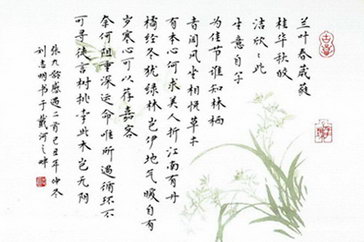 兰叶春葳蕤
桂华秋皎
洁欣欣此
生意自尔
为佳节谁知林栖
者闻风坐相悦草木
有本心何求美人折江南有丹
橘经冬犹绿林岂伊地气暖自有
岁寒心可以荐嘉客
奈何阻重深运命唯所遇循环不
可寻徒言树桃李此木岂无阴
张九龄感遇二首己丑年仲冬
刘志明书于戴河之畔